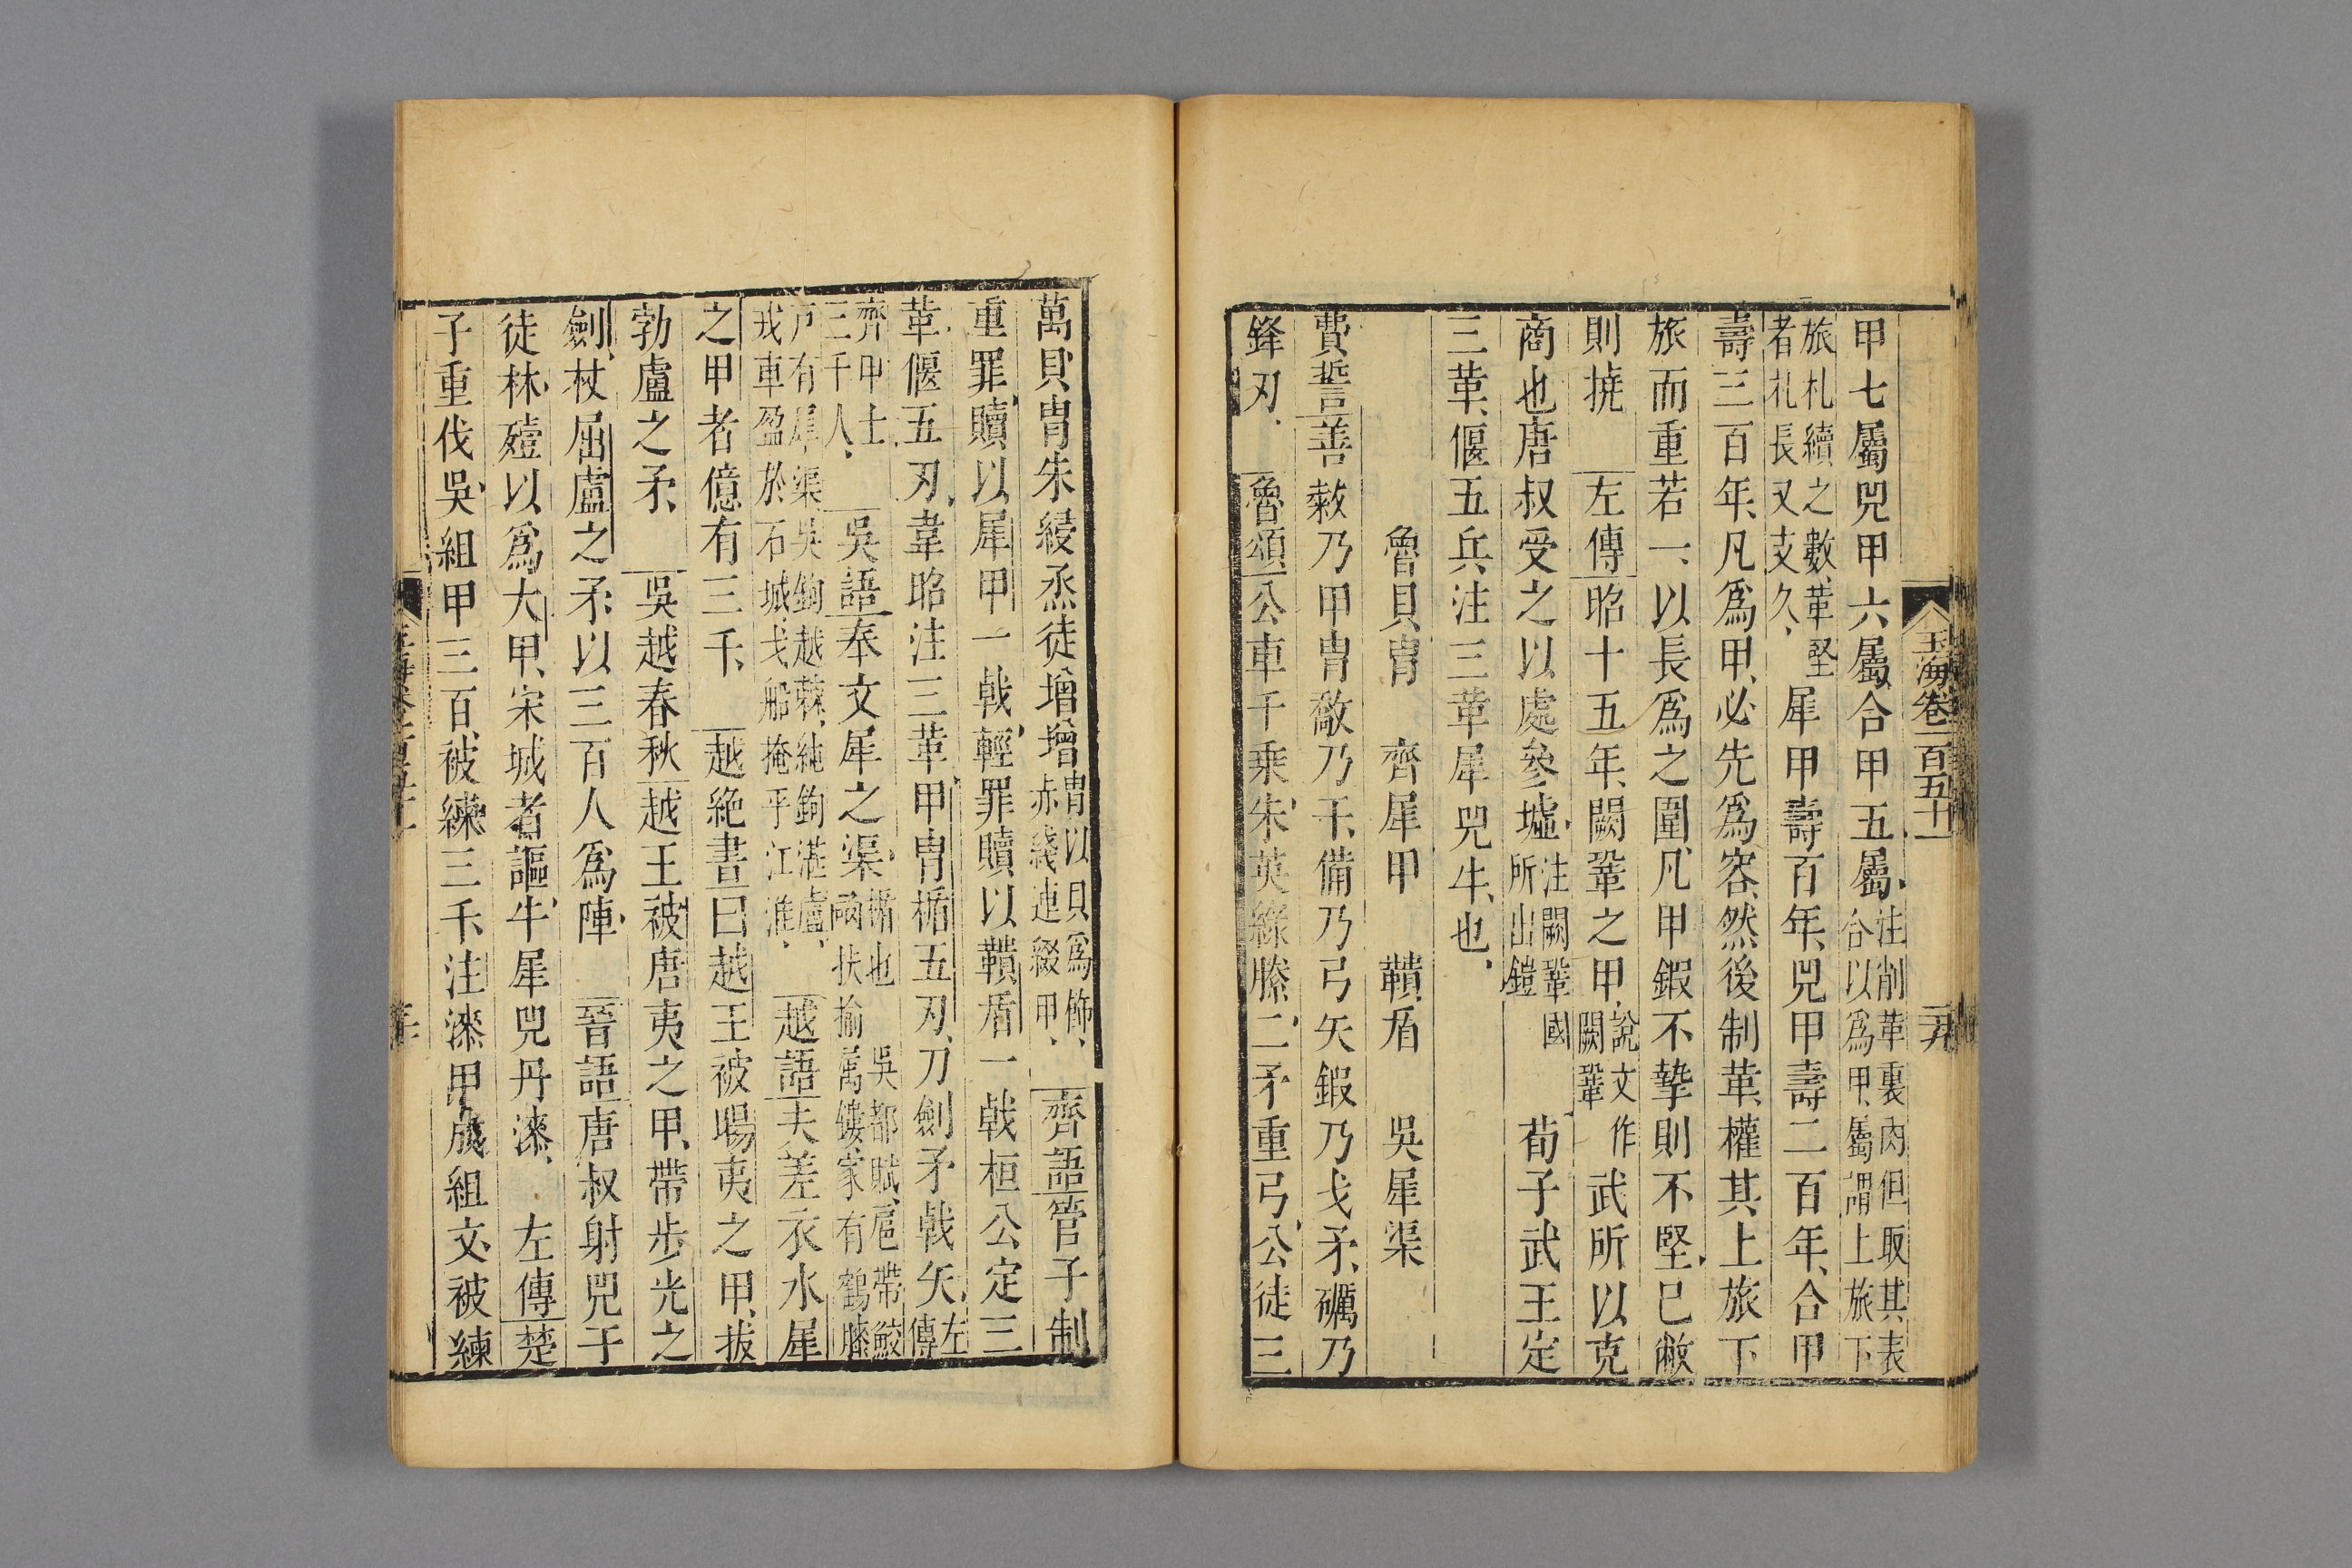 玉海卷一百五十一
甲七屬兕甲六屬合甲五屬注削革裏肉但取其表合以爲甲屬謂上旅下
旅札續之數革堅者札長又支久犀甲壽百年兕甲壽二百年合甲
壽三百年凡爲甲必先爲容然後制革權其上旅下
旅而重若一以長爲之圍凡甲鍛不摯則不堅已敝
則撓 左傳昭十五年闕鞏之甲說文作闕鞏武所以克
商也唐叔受之以處參墟注闕鞏國所出鎧 荀子武王定
三革偃五兵注三革犀兕牛也
魯貝冑 齊犀甲 鞼盾 吳犀渠
費誓善敹乃甲冑敿乃干備乃弓矢鍛乃戈矛礪乃
鋒刃 魯頌公車千乘朱英綠縢二矛重弓公徒三
萬貝冑朱綅烝徒增增冑以貝爲飾赤綫連綴甲 齊語管子制
重罪贖以犀甲一戟輕罪贖以鞼盾一戟桓公定三
革偃五刃韋昭注三革甲冑楯五刃刀劍矛戟矢左傳
齊甲士三千人 吳語奉文犀之渠楯也 吳都賦扈帶鮫函扶揄屬鏤家有鶴膝
戶有犀渠吳鉤越棘純鉤湛盧戎車盈於石城戈船掩乎江淮 越語夫差衣水犀
之甲者億有三千 越絶書曰越王被暘夷之甲拔
勃盧之矛 吳越春秋越王被唐夷之甲帶步光之
劍杖屈盧之矛以三百人爲陣 晉語唐叔射兕于
徒林殪以爲大甲宋城者謳牛犀兕丹漆 左傳楚
子重伐吳組甲三百被練三千注漆甲成組文被練